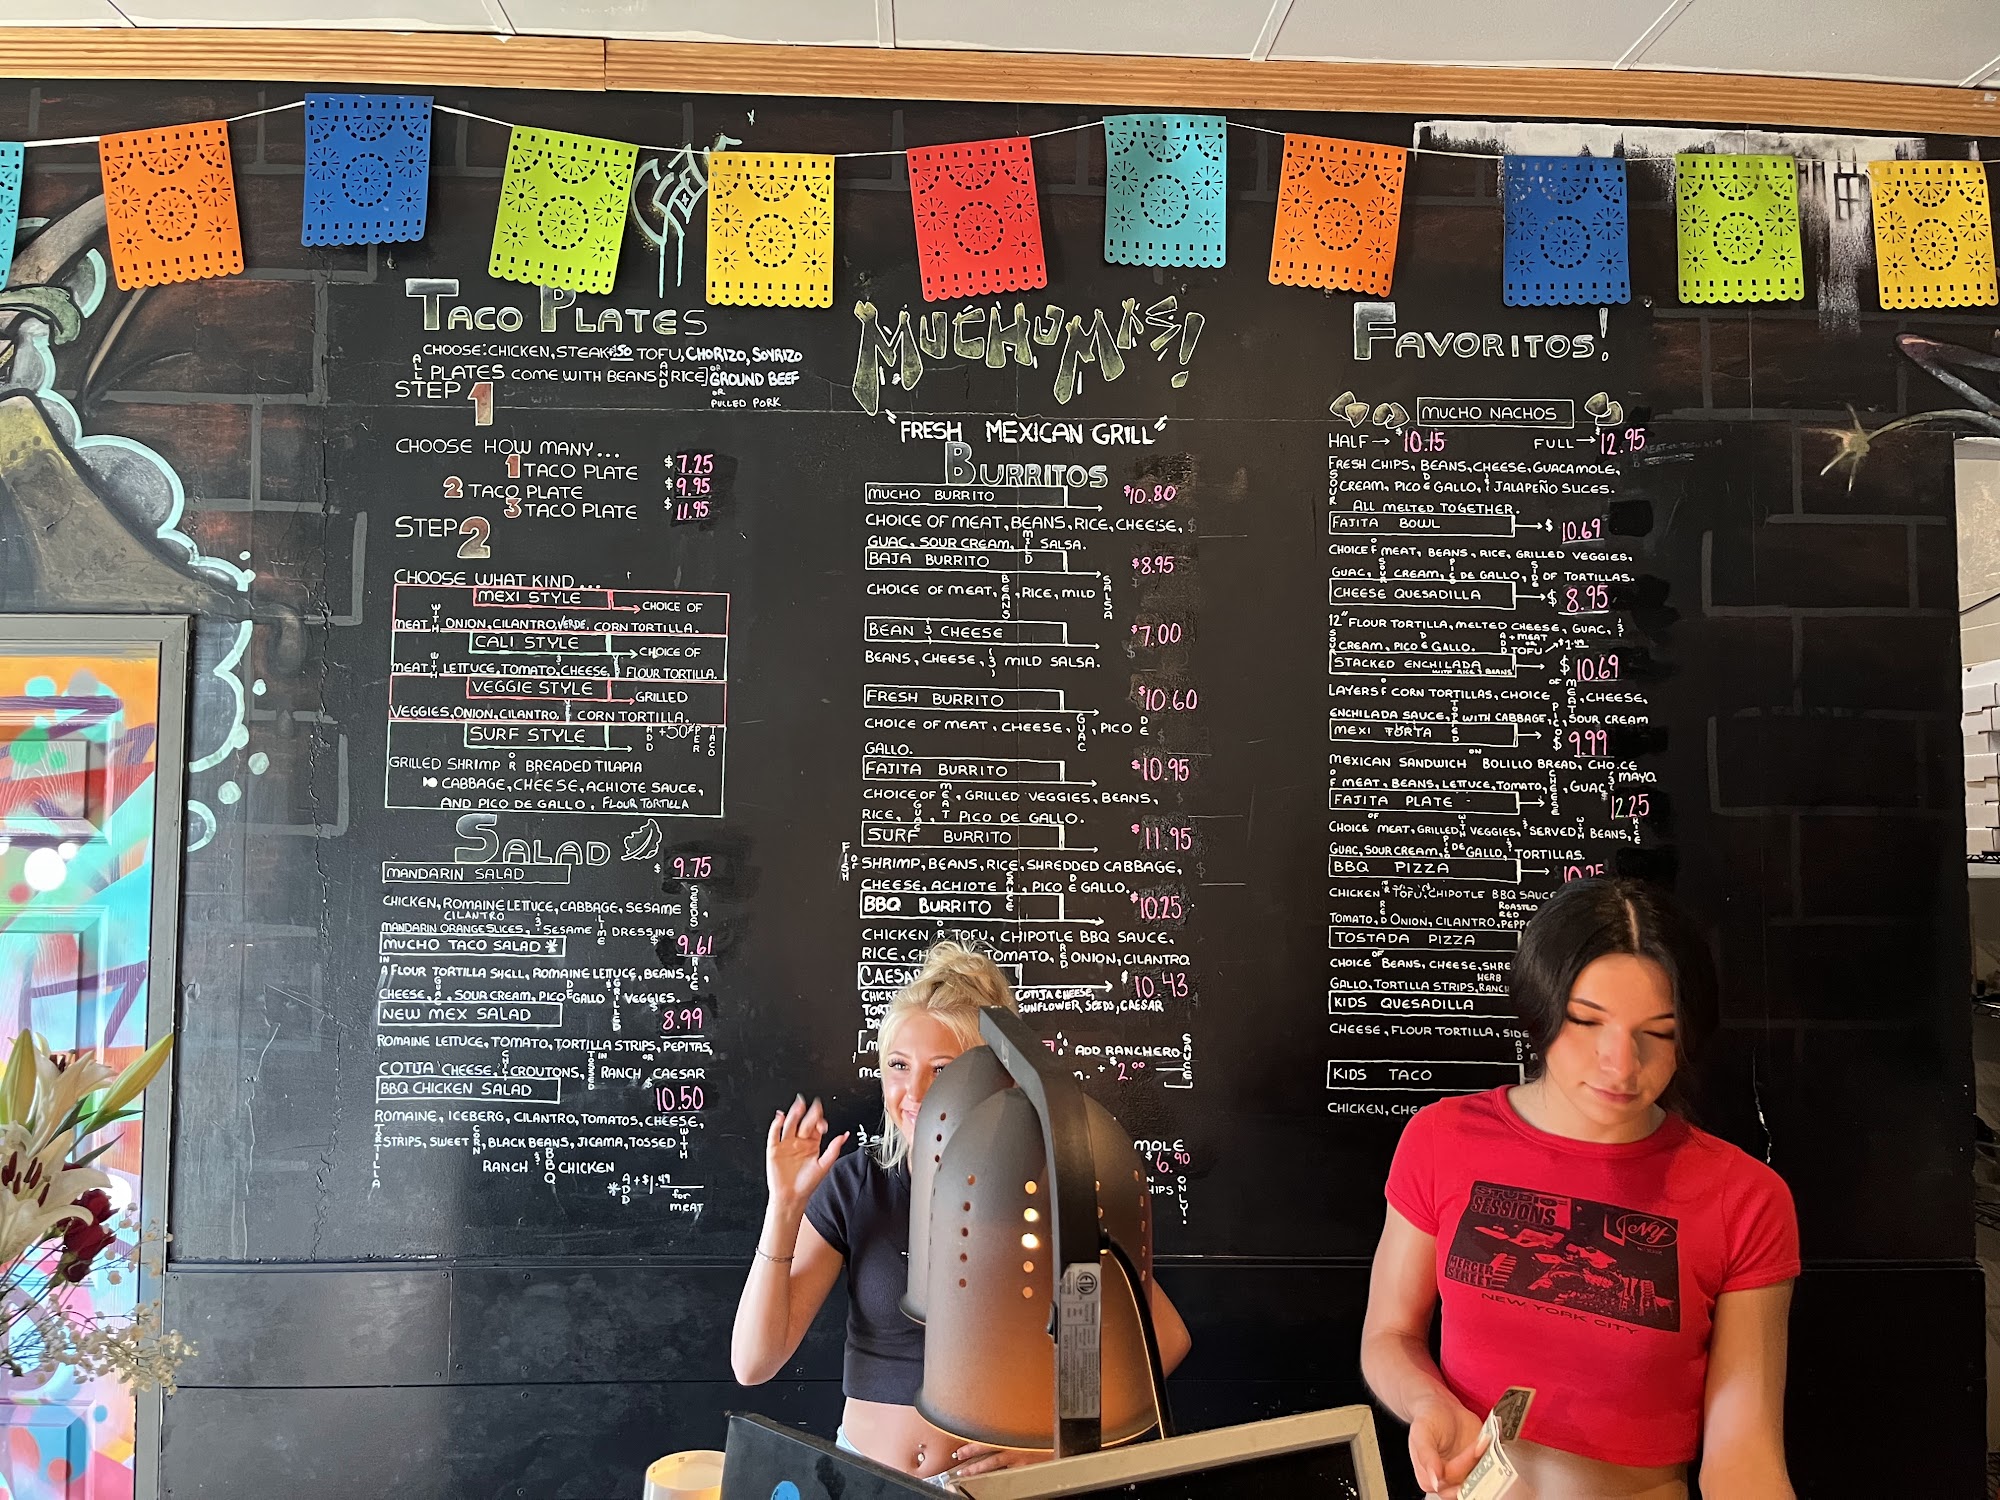 TACO PLATES
CHOOSE: CHICKEN, STEAK +.50 TOFU, CHORIZO, SOYRIZO
ALL PLATES COME WITH BEANS AND RICE] OR GROUND BEEF
OR PULLED PORK
STEP 1
CHOOSE HOW MANY...
1 TACO PLATE $7.25
2 TACO PLATE $9.95
3 TACO PLATE $11.95
STEP 2
CHOOSE WHAT KIND...
MEXI STYLE → CHOICE OF
MEAT WITH ONION, CILANTRO, VERDE, CORN TORTILLA.
CALI STYLE → CHOICE OF
MEAT WITH LETTUCE, TOMATO, CHEESE, & FLOUR TORTILLA.
VEGGIE STYLE → GRILLED
VEGGIES, ONION, CILANTRO, & CORN TORTILLA.
SURF STYLE → ADD +50¢ PER TACO
GRILLED SHRIMP OR BREADED TILAPIA
CABBAGE, CHEESE, ACHIOTE SAUCE,
AND PICO DE GALLO, FLOUR TORTILLA
SALAD
MANDARIN SALAD $9.75
CHICKEN, ROMAINE LETTUCE, CABBAGE, SESAME SEEDS,
CILANTRO
MANDARIN ORANGE SLICES, & SESAME LIME DRESSING
MUCHO TACO SALAD * $9.61
IN A FLOUR TORTILLA SHELL, ROMAINE LETTUCE, BEANS, RICE,
CHEESE, GUAC, SOUR CREAM, PICO DE GALLO & GRILLED VEGGIES.
NEW MEX SALAD 8.99
ROMAINE LETTUCE, TOMATO, TORTILLA STRIPS, PEPITAS,
COTIJA CHEESE, CROUTONS, TOSSED IN RANCH OR CAESAR
BBQ CHICKEN SALAD $10.50
ROMAINE, ICEBERG, CILANTRO, TOMATOS, CHEESE,
TORTILLA STRIPS, SWEET CORN, BLACK BEANS, JICAMA, TOSSED WITH
RANCH & BBQ CHICKEN
* ADD +$1.49 for meat
MUCHOMAS!
"FRESH MEXICAN GRILL"
BURRITOS
MUCHO BURRITO $10.80
CHOICE OF MEAT, BEANS, RICE, CHEESE,
GUAC, SOUR CREAM, MILD SALSA.
BAJA BURRITO $8.95
CHOICE OF MEAT, BEANS, RICE, MILD SALSA
BEAN & CHEESE $7.00
BEANS, CHEESE, & MILD SALSA.
FRESH BURRITO $10.60
CHOICE OF MEAT, CHEESE, GUAC, PICO DE
GALLO.
FAJITA BURRITO $10.95
CHOICE OF MEAT, GRILLED VEGGIES, BEANS,
RICE, GUAC, & PICO DE GALLO.
SURF BURRITO $11.95
FISH OR SHRIMP, BEANS, RICE, SHREDDED CABBAGE,
CHEESE, ACHIOTE SAUCE, PICO DE GALLO.
BBQ BURRITO $10.25
CHICKEN OR TOFU, CHIPOTLE BBQ SAUCE,
RICE, TOMATO, RED ONION, CILANTRO
CAESAR $10.43
COTIJA CHEESE,
SUNFLOWER SEEDS, CAESAR
ADD RANCHERO SAUCE
+ $2.00
$6.90
ONLY.
FAVORITOS!
MUCHO NACHOS
HALF → $10.15 FULL → $12.95
FRESH CHIPS, BEANS, CHEESE, GUACAMOLE,
SOUR CREAM, PICO DE GALLO, & JALAPEÑO SLICES.
ALL MELTED TOGETHER.
FAJITA BOWL → $10.69
CHOICE OF MEAT, BEANS, RICE, GRILLED VEGGIES,
GUAC, SOUR CREAM, PICO DE GALLO, SIDE OF TORTILLAS.
CHEESE QUESADILLA → $8.95
12" FLOUR TORTILLA, MELTED CHEESE, GUAC, &
SOUR CREAM, PICO DE GALLO. ADD + MEAT OR TOFU $1.49
STACKED ENCHILADA WITH RICE & BEANS → $10.69
LAYERS OF CORN TORTILLAS, CHOICE OF MEAT, CHEESE,
ENCHILADA SAUCE, TOPPED WITH CABBAGE, PICO, SOUR CREAM
MEXI TORTA → $9.99
MEXICAN SANDWICH ON BOLILLO BREAD, CHOICE
OF MEAT, BEANS, LETTUCE, TOMATO, CHEESE, GUAC & MAYO
FAJITA PLATE → $12.25
CHOICE OF MEAT, GRILLED WITH VEGGIES, & SERVED WITH BEANS, RICE
GUAC, SOUR CREAM, PICO DE GALLO, & TORTILLAS.
BBQ PIZZA → 10.25
CHICKEN OR TOFU, CHIPOTLE BBQ SAUCE
TOMATO, RED ONION, CILANTRO, ROASTED RED
TOSTADA PIZZA
CHOICE OF BEANS, CHEESE,
GALLO, TORTILLA STRIPS, HERB RANCH
KIDS QUESADILLA
CHEESE, FLOUR TORTILLA, SIDE
KIDS TACO
CHICKEN,
STUDIO SESSIONS
NY
MERCER STREET
NEW YORK CITY